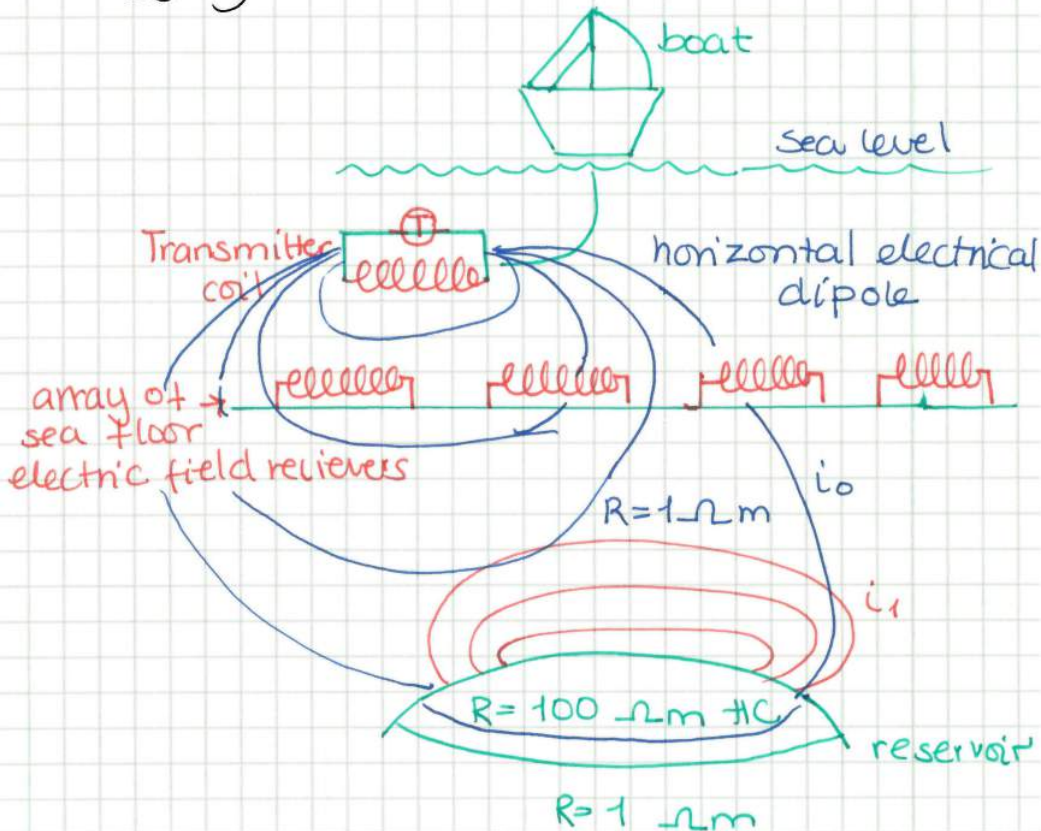 boat
sea level
T
Transmitter
coil
horizontal electrical
dipole
array of
sea floor
electric field relievers
i₀
R=1 Ωm
i₁
R= 100 Ωm HC
reservoir
R= 1 Ωm